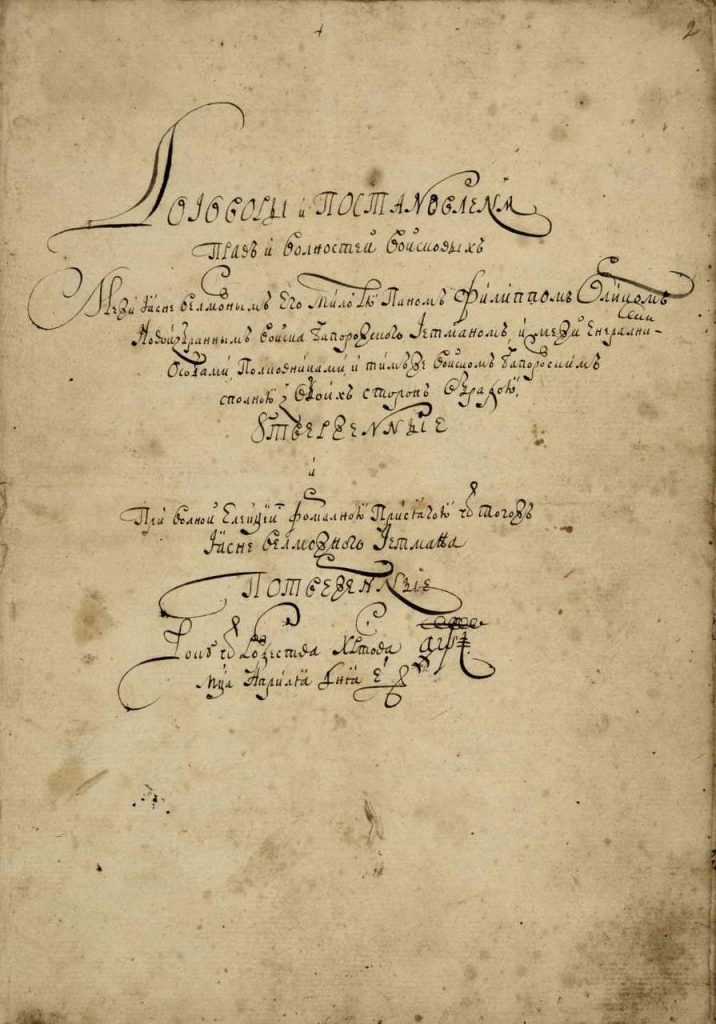 2
Договоры и Постановленя
Правъ и волностей войсковыхъ
Межи Ясне велможнымъ Его Милостю Паномъ Филиппомъ Орликомъ
Новоизбраннымъ войска Запорожского Гетманомъ, и межи Енералними
Особами Полковниками, и тимъже войскомъ Запорожскимъ
сполною з обоихъ сторонъ обрадою,
Утверженные
и
Приволной Елекции формалною Присягою ѿ тогожъ
Ясне велможного Гетмана
Потверженные
Року ѿ Рождества Христова ҂аѱі
мця Априля Дня е҃